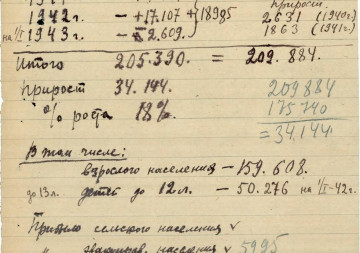 1942г. — +17.107 + 18985 2631 (1940г.)
на 1/I 1943г. — 2.609. 1863 (1941г.)
Итого 205.390. = 209.884.
Прирост 34.144. 209884
% роста 18%. 175740
= 34.144
В том числе:
взрослого населения — 159.608.
до 13л. детей до 12л. — 50.276 на 1/I-42г.
сельского населения v
" эвакуиров. населения v 5995